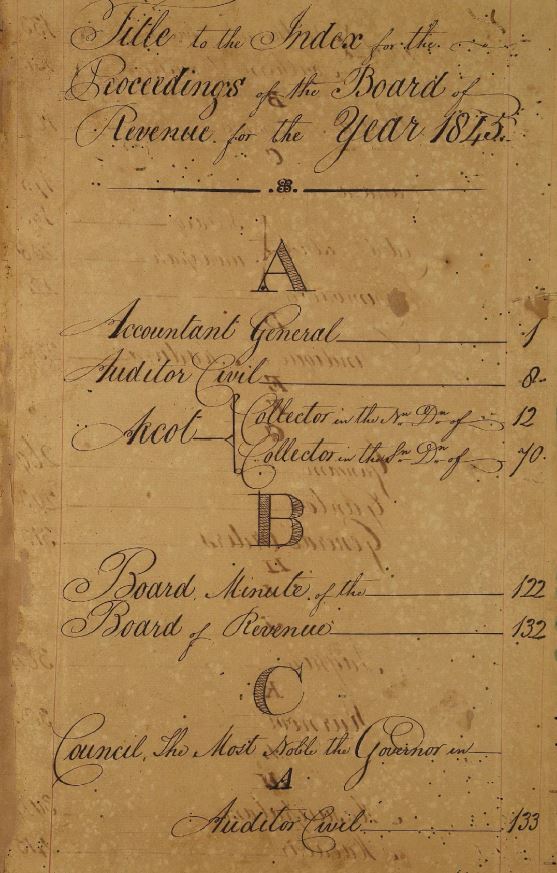 Title to the Index for the
Proceedings of the Board of
Revenue for the Year 1845.
A
Accountant General 1
Auditor Civil 8
Arcot { Collector in the Nn Dn of 12
Collector in the Sn Dn of 70
B
Board, Minute of the 122
Board of Revenue 132
C
Council, The Most Noble the Governor in
A
Auditor Civil 133